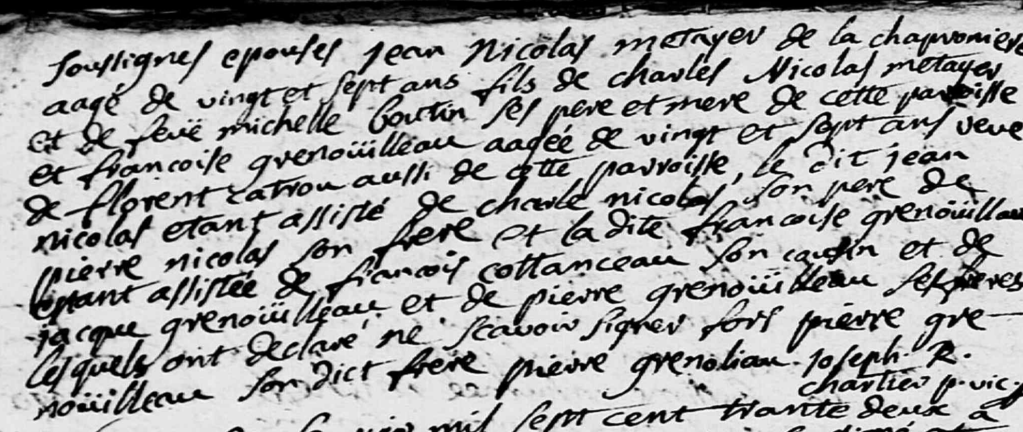 soussignes epouses jean Nicolas metayer de la chapronniere
aagé de vingt et sept ans fils de charles Nicolas metayer
et de feuë michelle boutin ses pere et mere de cette parroisse
et francoise grenoüilleau aagée de vingt et sept ans veuve
de florent catrou aussi de cette parroisse, le dit jean
nicolas etant assisté de charle nicolas son pere de
pierre nicolas son frere et la dite francoise grenoüilleau
estant assistée de francois cottanceau son cousin et de
jacque grenoüilleau et de pierre grenoüilleau ses freres
lesquels ont declaré ne scavoir signer fors pierre gre-
noüilleau son dict frere pierre grenoliau. joseph. R.
chartier p. vic.
mil sept cent trante deux a